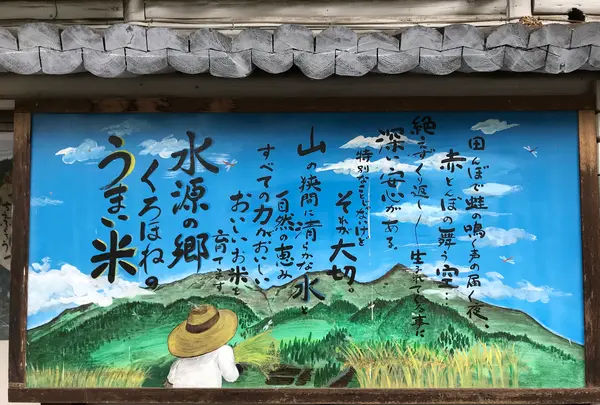 田んぼで蛙の鳴く声の届く夜、
赤とんぼの舞う空…
絶えずくり返し
深い安心がある。
特別なことじゃないけど
それが大切。
山の狭間に清らかな水と
自然の恵み
すべての力がおいしい、
おいしいお米を
育てます
水源の郷
くろほねの
うまい米